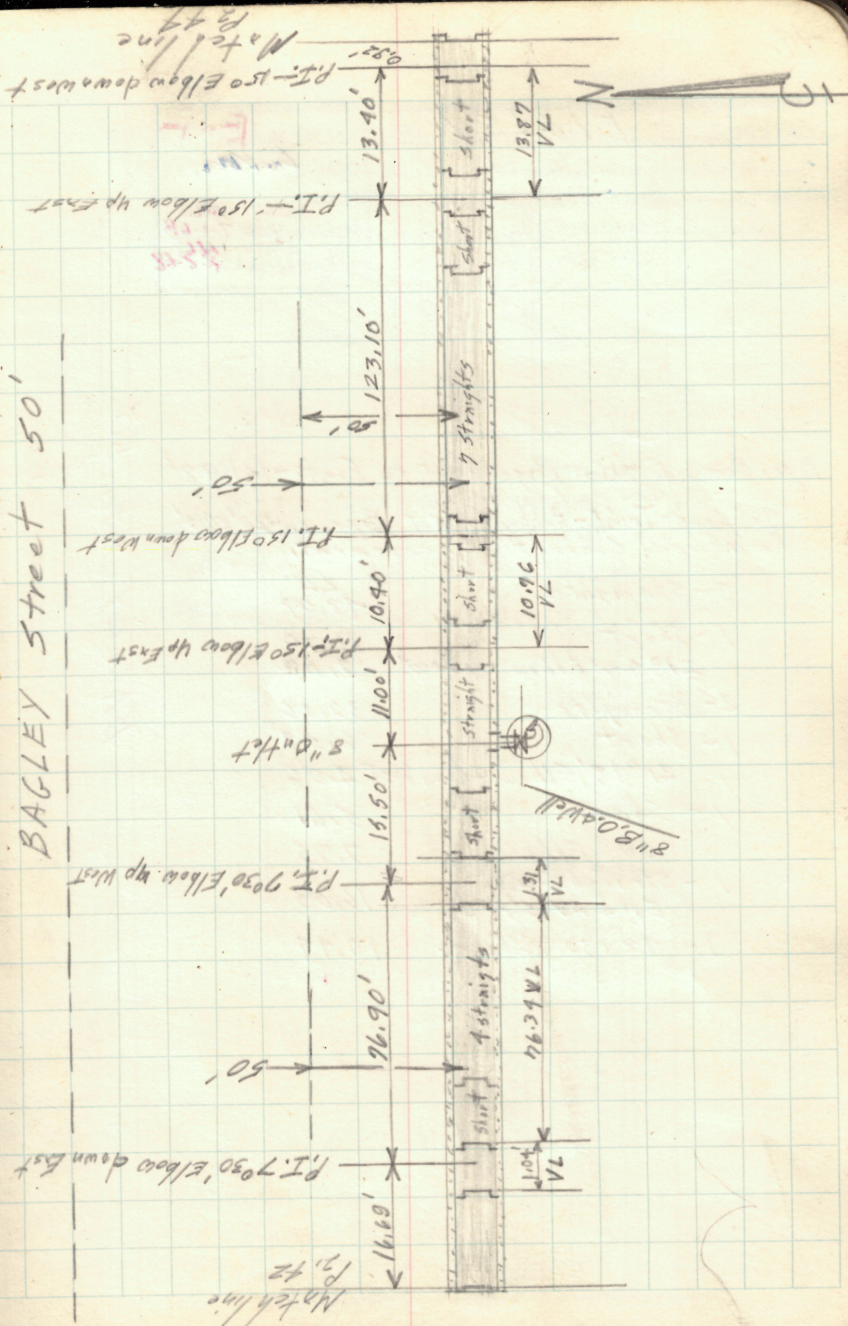 Match line
Pg 44
0.92'
P.I.-15° Elbow down West
13.40'
Short
13.87
VL
N
P.I.-15° Elbow Up East
Short
123.10'
7 Straights
50'
50'
BAGLEY Street 50'
P.I. 15° Elbow down West
10.40'
Short
10.76
VL
P.I.-15° Elbow Up East
11.00'
Straight
8" Outlet
8" B.O. & Well
15.50'
Short
P.I. 7°30' Elbow up West
1.31
VL
76.90'
4 straigts
76.34 VL
50'
Short
P.I. 7°30' Elbow down East
1.04'
VL
16.69'
Match line
Pg. 42